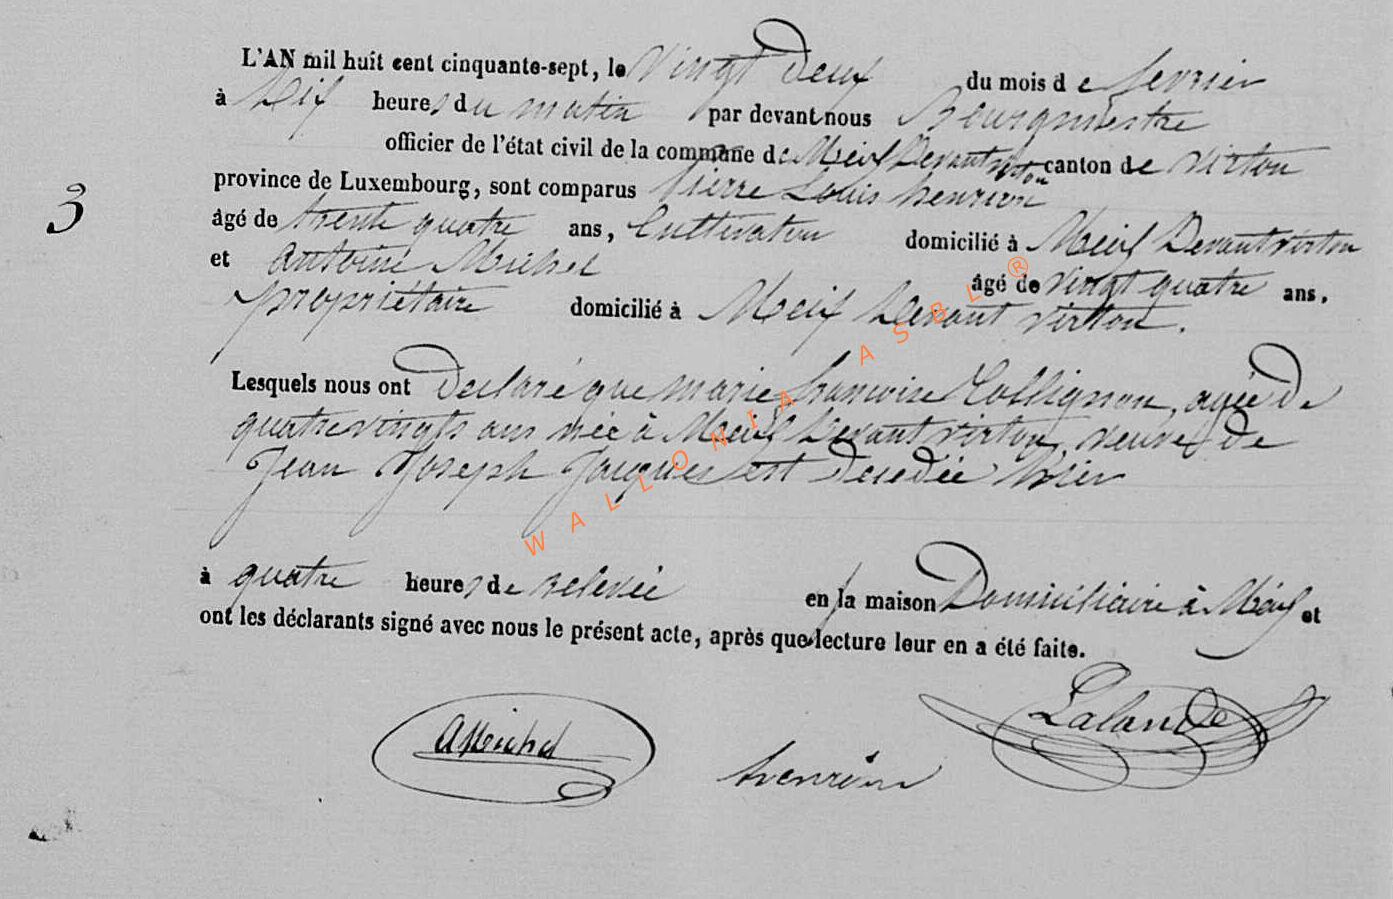 L'AN mil huit cent cinquante-sept, le vingt deux du mois de fevrier
à dix heures du matin par devant nous Bourgmestre
officier de l'état civil de la commune de Meix Devant Virton canton de virton
province de Luxembourg, sont comparus Pierre Louis henrion
3
âgé de trente quatre ans, Cultivateur domicilié à Meix Devant virton
et Antoine Michel âgé de vingt quatre ans.
propriétaire domicilié à Meix Devant virton.
Lesquels nous ont declaré que marie francoise Collignon, agée de
quatrevingts ans née à Meix Devant virton, veuve de
Jean Joseph Jacques est decedée hier
à quatre heures de relevée en la maison Domiciliaire à Meix et
ont les déclarants signé avec nous le présent acte, après que lecture leur en a été faite.
AMichel henrion Lalande
WALLONIA ASBL ®